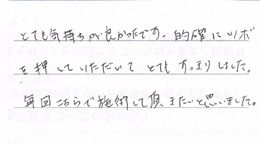 とても気持ちが良かったです。的確にツボ
を押していただいてとてもすっきりしました。
毎回こちらで施術して頂きたいと思いました。